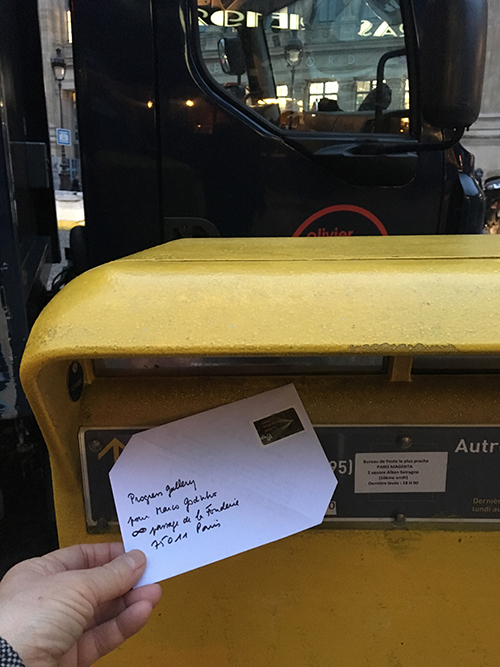 olivier
95)
Bureau de Poste le plus proche
PARIS MAGENTA
2 square Alban Satragne
(10ème arrdt)
Dernière levée : 18 H 00
Autr
Dernière
lundi au
Progress Gallery
pour Marco Godinho
passage de la Fonderie
75011 Paris